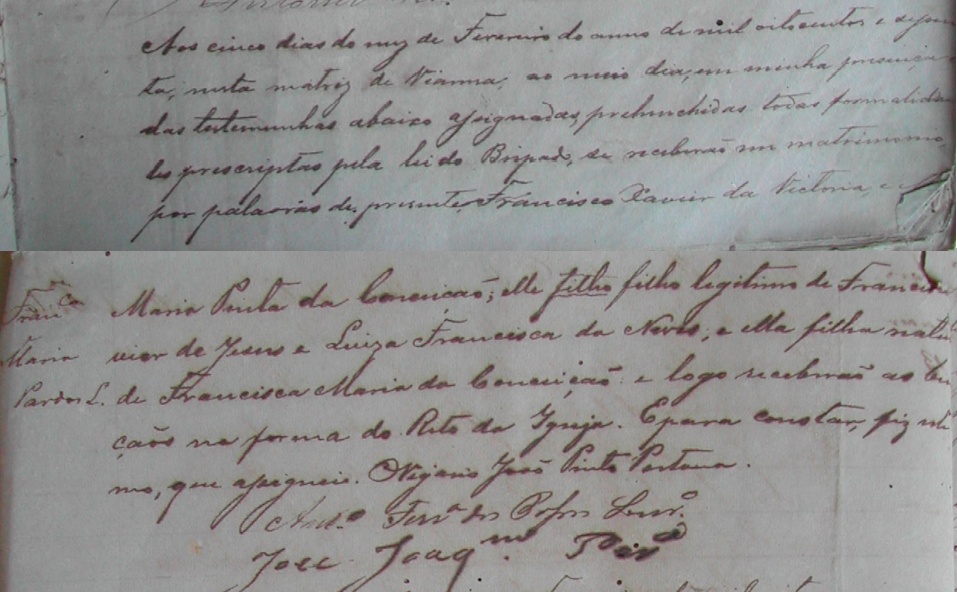 Aos cinco dias do mez de Fevereiro do anno de mil oitocentos e sepen
ta, nesta matriz de Vianna, ao meio dia, em minha presença e
das testemunhas abaixo assignadas, prehenchidas todas formalida
des prescriptas pela lei do Bispado, se receberão em matrimonio,
por palavras de presente, Francisco Xavier da Victoria, e
Franca Maria Pinta da Conceicaõ; elle filho filho legitimo de Francisco
Maria vier de Jesus e Luiza Francisca das Neves, e ella filha natu
Pardos L. de Francisca Maria da Conceiçaõ: e logo receberaõ as ben
çaõs na forma do Rito da Igreja. E para constar, fiz este
mo, que assignei. O Vigario José Pinto Pestana.
Anto Ferra dos Passos Lour.º
José Joaqm